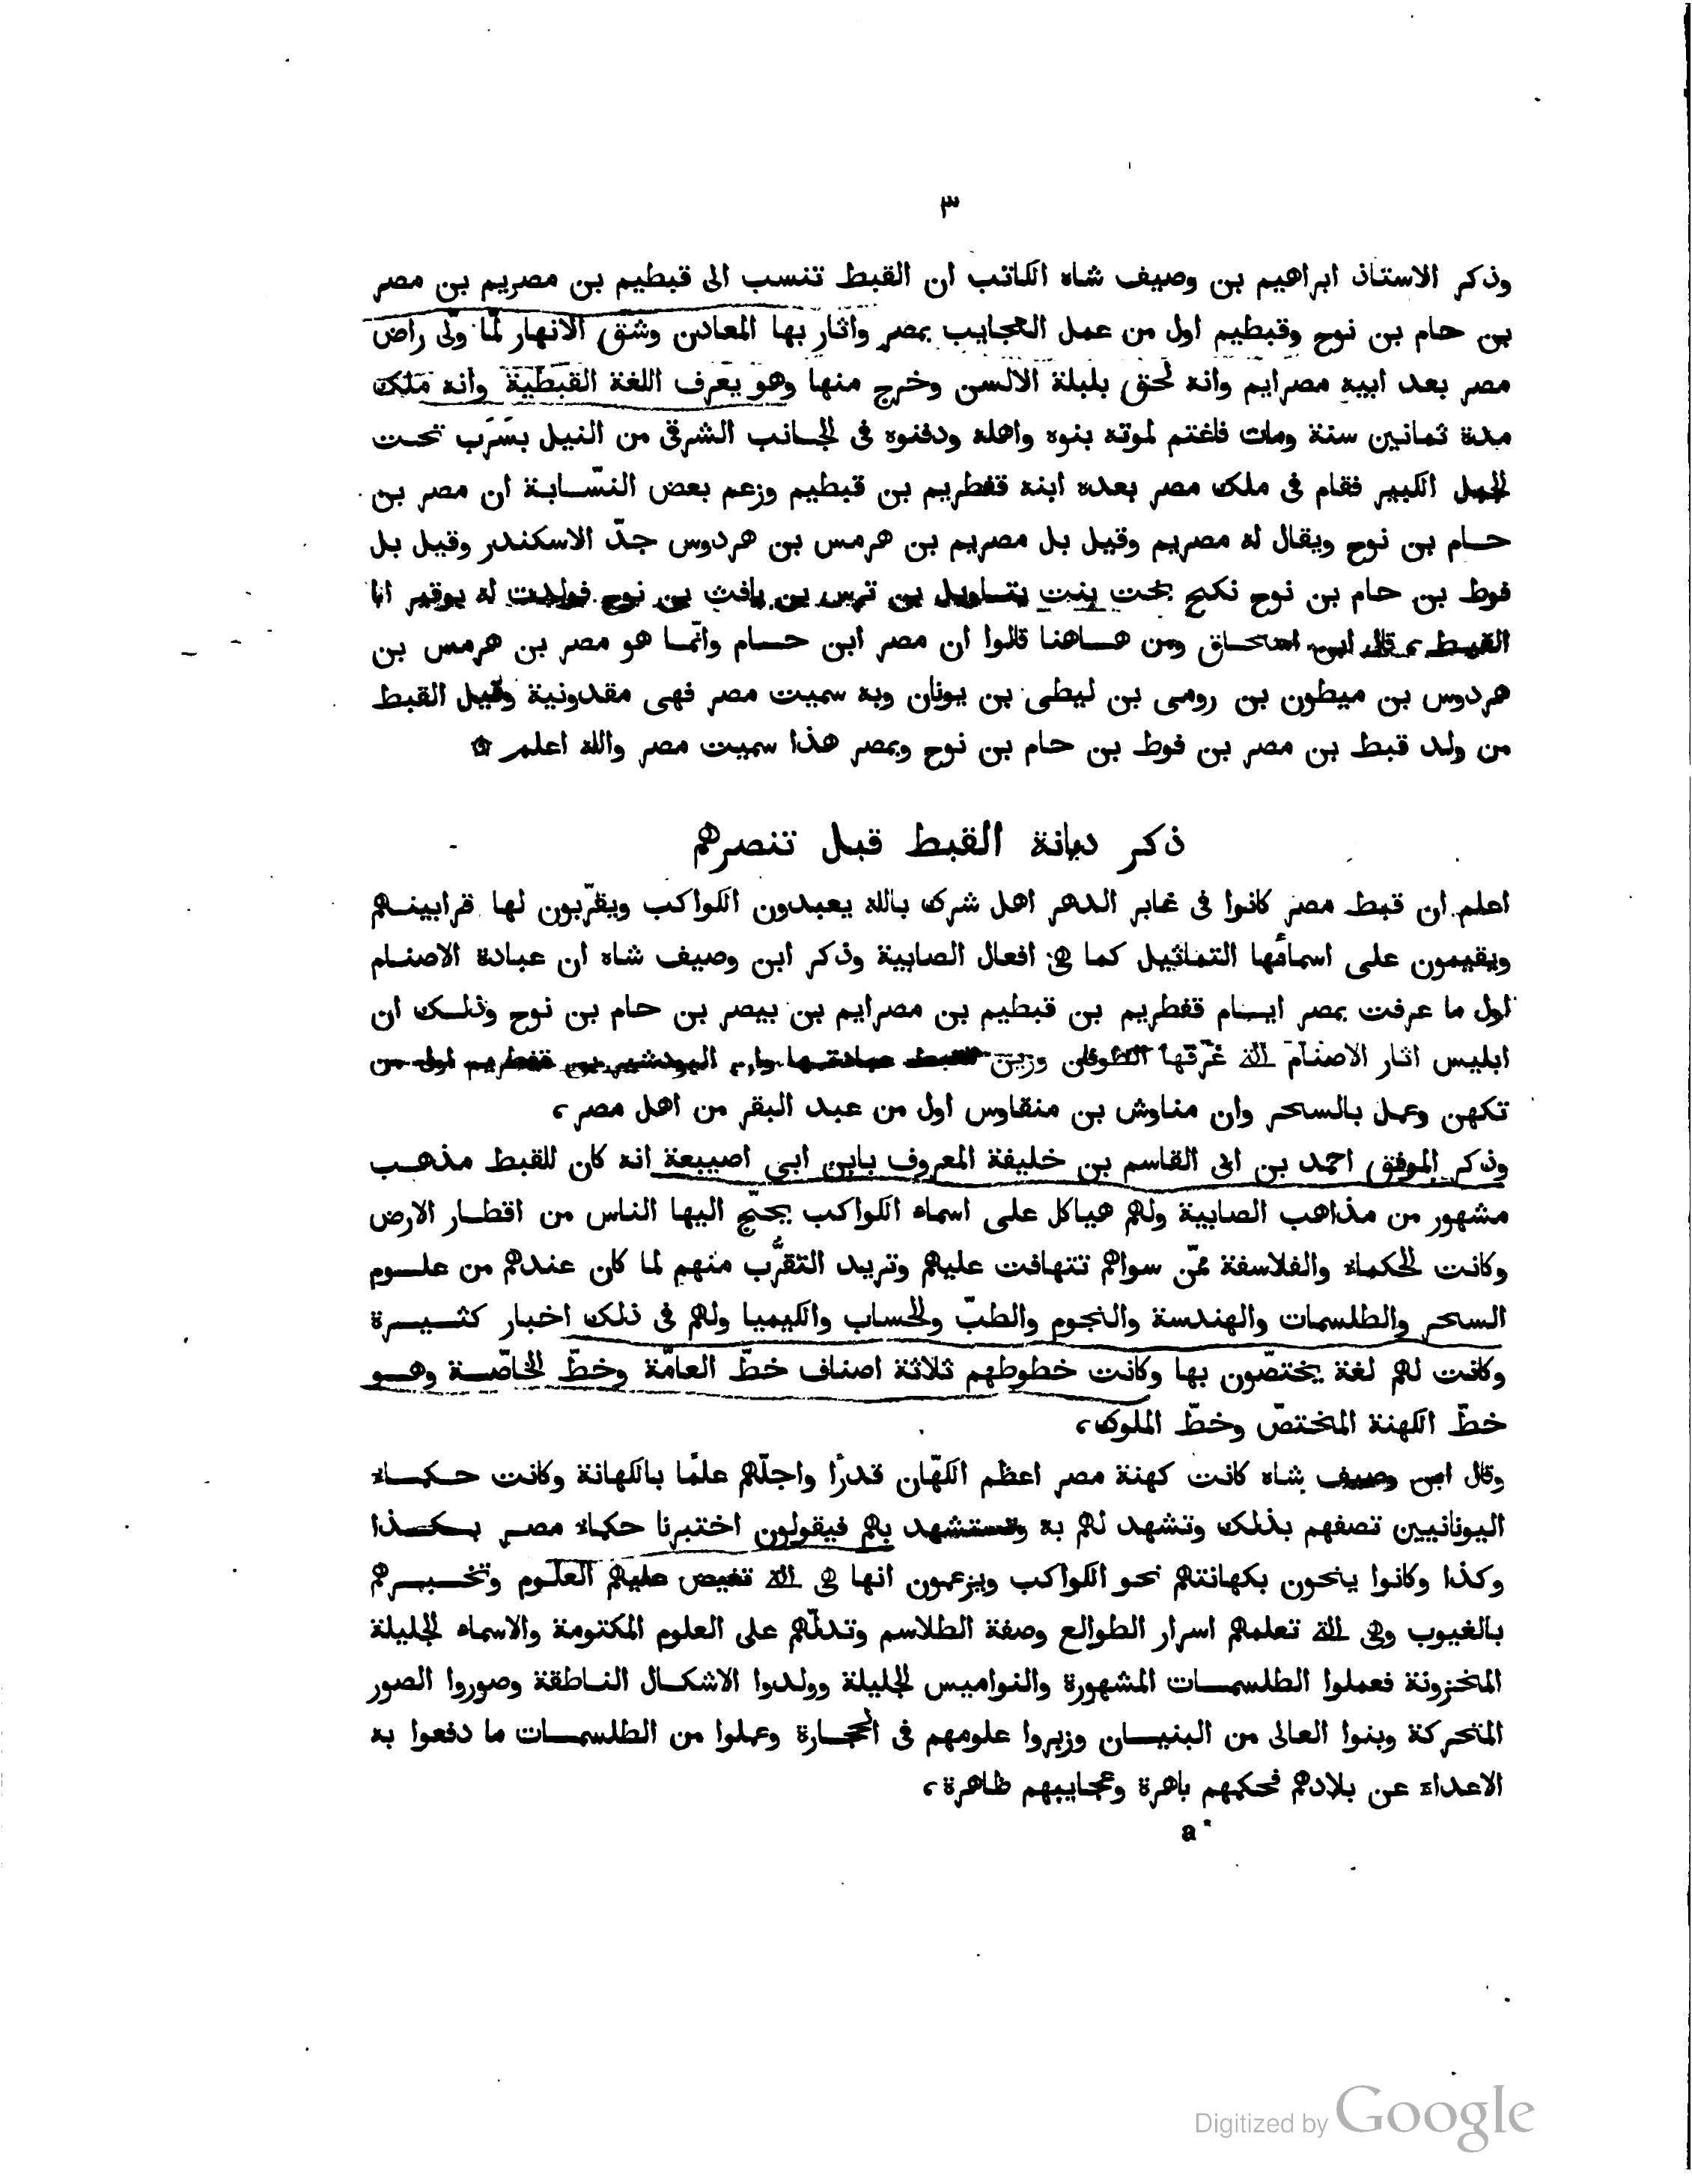 ٣
وذكر الاستاذ ابراهيم بن وصيف شاه الكاتب ان القبط تنسب الى قبطيم بن مصريم بن مصر
بن حام بن نوح وقبطيم اول من عمل العجايب بمصر واثار بها المعادن وشق الانهار لمّا ولّى راض
مصر بعد ابيه مصرايم وانه لحق بلبلة الالسن وخرج منها وهو يعرف اللغة القبطية وانه ملك
مدة ثمانين سنة ومات فاغتم لموته بنوه واهله ودفنوه فى الجانب الشرقى من النيل بسَرَب تحت
الجبل الكبير فقام فى ملك مصر بعده ابنه قفطريم بن قبطيم وزعم بعض النسّابة ان مصر بن
حام بن نوح ويقال له مصريم وقيل بل مصريم بن هرمس بن هردوس جدّ الاسكندر وقيل بل
فوط بن حام بن نوح نكح بخت بنت يتاويل بن ترس بن يافث بن نوح فولدت له بوقير ابا
القبط، قال ابن اسحاق ومن هاهنا قالوا ان مصر ابن حام وانّما هو مصر بن هرمس بن
هردوس بن ميطون بن رومى بن ليطى بن يونان وبه سميت مصر فهى مقدونية وقيل القبط
من ولد قبط بن مصر بن فوط بن حام بن نوح وبمصر هذا سميت مصر والله اعلم ۞
ذكر ديانة القبط قبل تنصرهم
اعلم ان قبط مصر كانوا فى غابر الدهر اهل شرك بالله يعبدون الكواكب ويقرّبون لها قرابينهم
ويقيمون على اسمائها التماثيل كما هى افعال الصابية وذكر ابن وصيف شاه ان عبادة الاصنام
اول ما عرفت بمصر ايام قفطريم بن قبطيم بن مصرايم بن بيصر بن حام بن نوح وذلك ان
ابليس اثار الاصنام التى غرّقها الطوفان وزين للقبط عبادتها وان البودشير بن قفطريم اول من
تكهن وعمل بالسحر وان مناوش بن منقاوس اول من عبد البقر من اهل مصر،
وذكر الموفق احمد بن ابى القاسم بن خليفة المعروف بابن ابى اصيبعة انه كان للقبط مذهب
مشهور من مذاهب الصابية ولهم هياكل على اسماء الكواكب يحجّ اليها الناس من اقطار الارض
وكانت الحكماء والفلاسفة ممّن سواهم تتهافت عليهم وتريد التقرُّب منهم لما كان عندهم من علوم
السحر والطلسمات والهندسة والنجوم والطبّ والحساب والكيميا ولهم فى ذلك اخبار كثيرة
وكانت لهم لغة يختصّون بها وكانت خطوطهم ثلاثة اصناف خطّ العامّة وخطّ الخاصّة وهو
خطّ الكهنة المختصّ وخطّ الملوك،
وقال ابن وصيف شاه كانت كهنة مصر اعظم الكهّان قدرًا واجلّهم علمًا بالكهانة وكانت حكماء
اليونانيين تصفهم بذلك وتشهد لهم به وتستشهد بهم فيقولون اختبرنا حكماء مصر بكذا
وكذا وكانوا ينحون بكهانتهم نحو الكواكب ويزعمون انها هى التى تفيض عليهم العلوم وتخبرهم
بالغيوب وهى التى تعلمهم اسرار الطوالع وصفة الطلاسم وتدلّهم على العلوم المكتومة والاسماء الجليلة
المخزونة فعملوا الطلسمات المشهورة والنواميس الجليلة وولدوا الاشكال الناطقة وصوروا الصور
المتحركة وبنوا العالى من البنيان وزبروا علومهم فى الحجارة وعملوا من الطلسمات ما دفعوا به
الاعداء عن بلادهم فحكمهم باهرة وعجايبهم ظاهرة،
a*
Digitized by Google